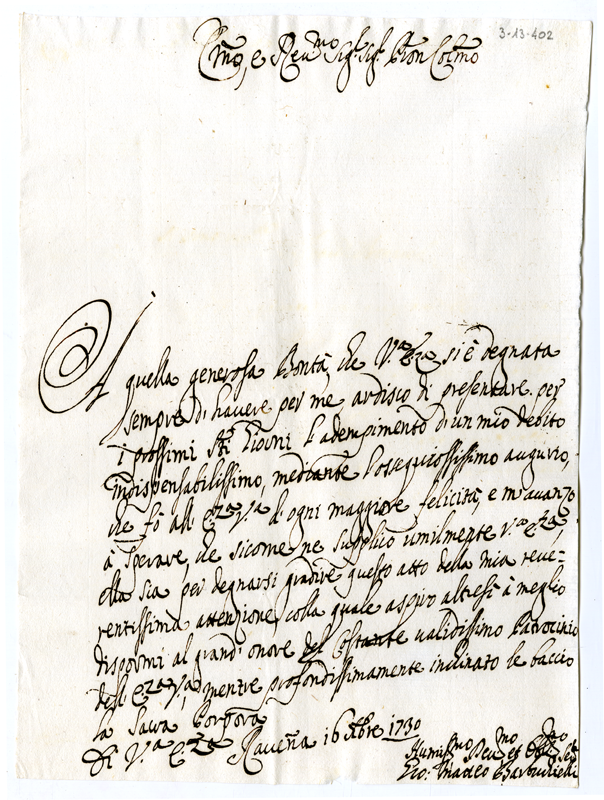 3-13-402
Illmo, e Revmo Sigr. Sigr. Pron Colmo
A quella generosa Bontà, che V.a Ecza si è degnata
sempre di havere per me ardisco di presentare per
i prossimi Sti Giorni l'adempimento d'un mio debito
indispensabilissimo, mediante l'ossequiosissimo augurio,
che fò all' Ecza V.a d'ogni maggiore felicità, e m'avanzo
à sperare, che sicome ne supplico umilmente V.a Ecza,
ella sia per degnarsi gradire questo atto della mia reve=
rentissima attenzione, colla quale aspiro altresì à meglio
dispormi al grand' onore del Costante validissimo Patrocinio
dell' Ecza V.a, mentre profondissimamente inclinato le baccio
la Sacra Porpora
Di V.a Ecza Ravenna 16 Xbre 1730
Humilmo Devmo et Obblmo Sert
Gio: Matteo